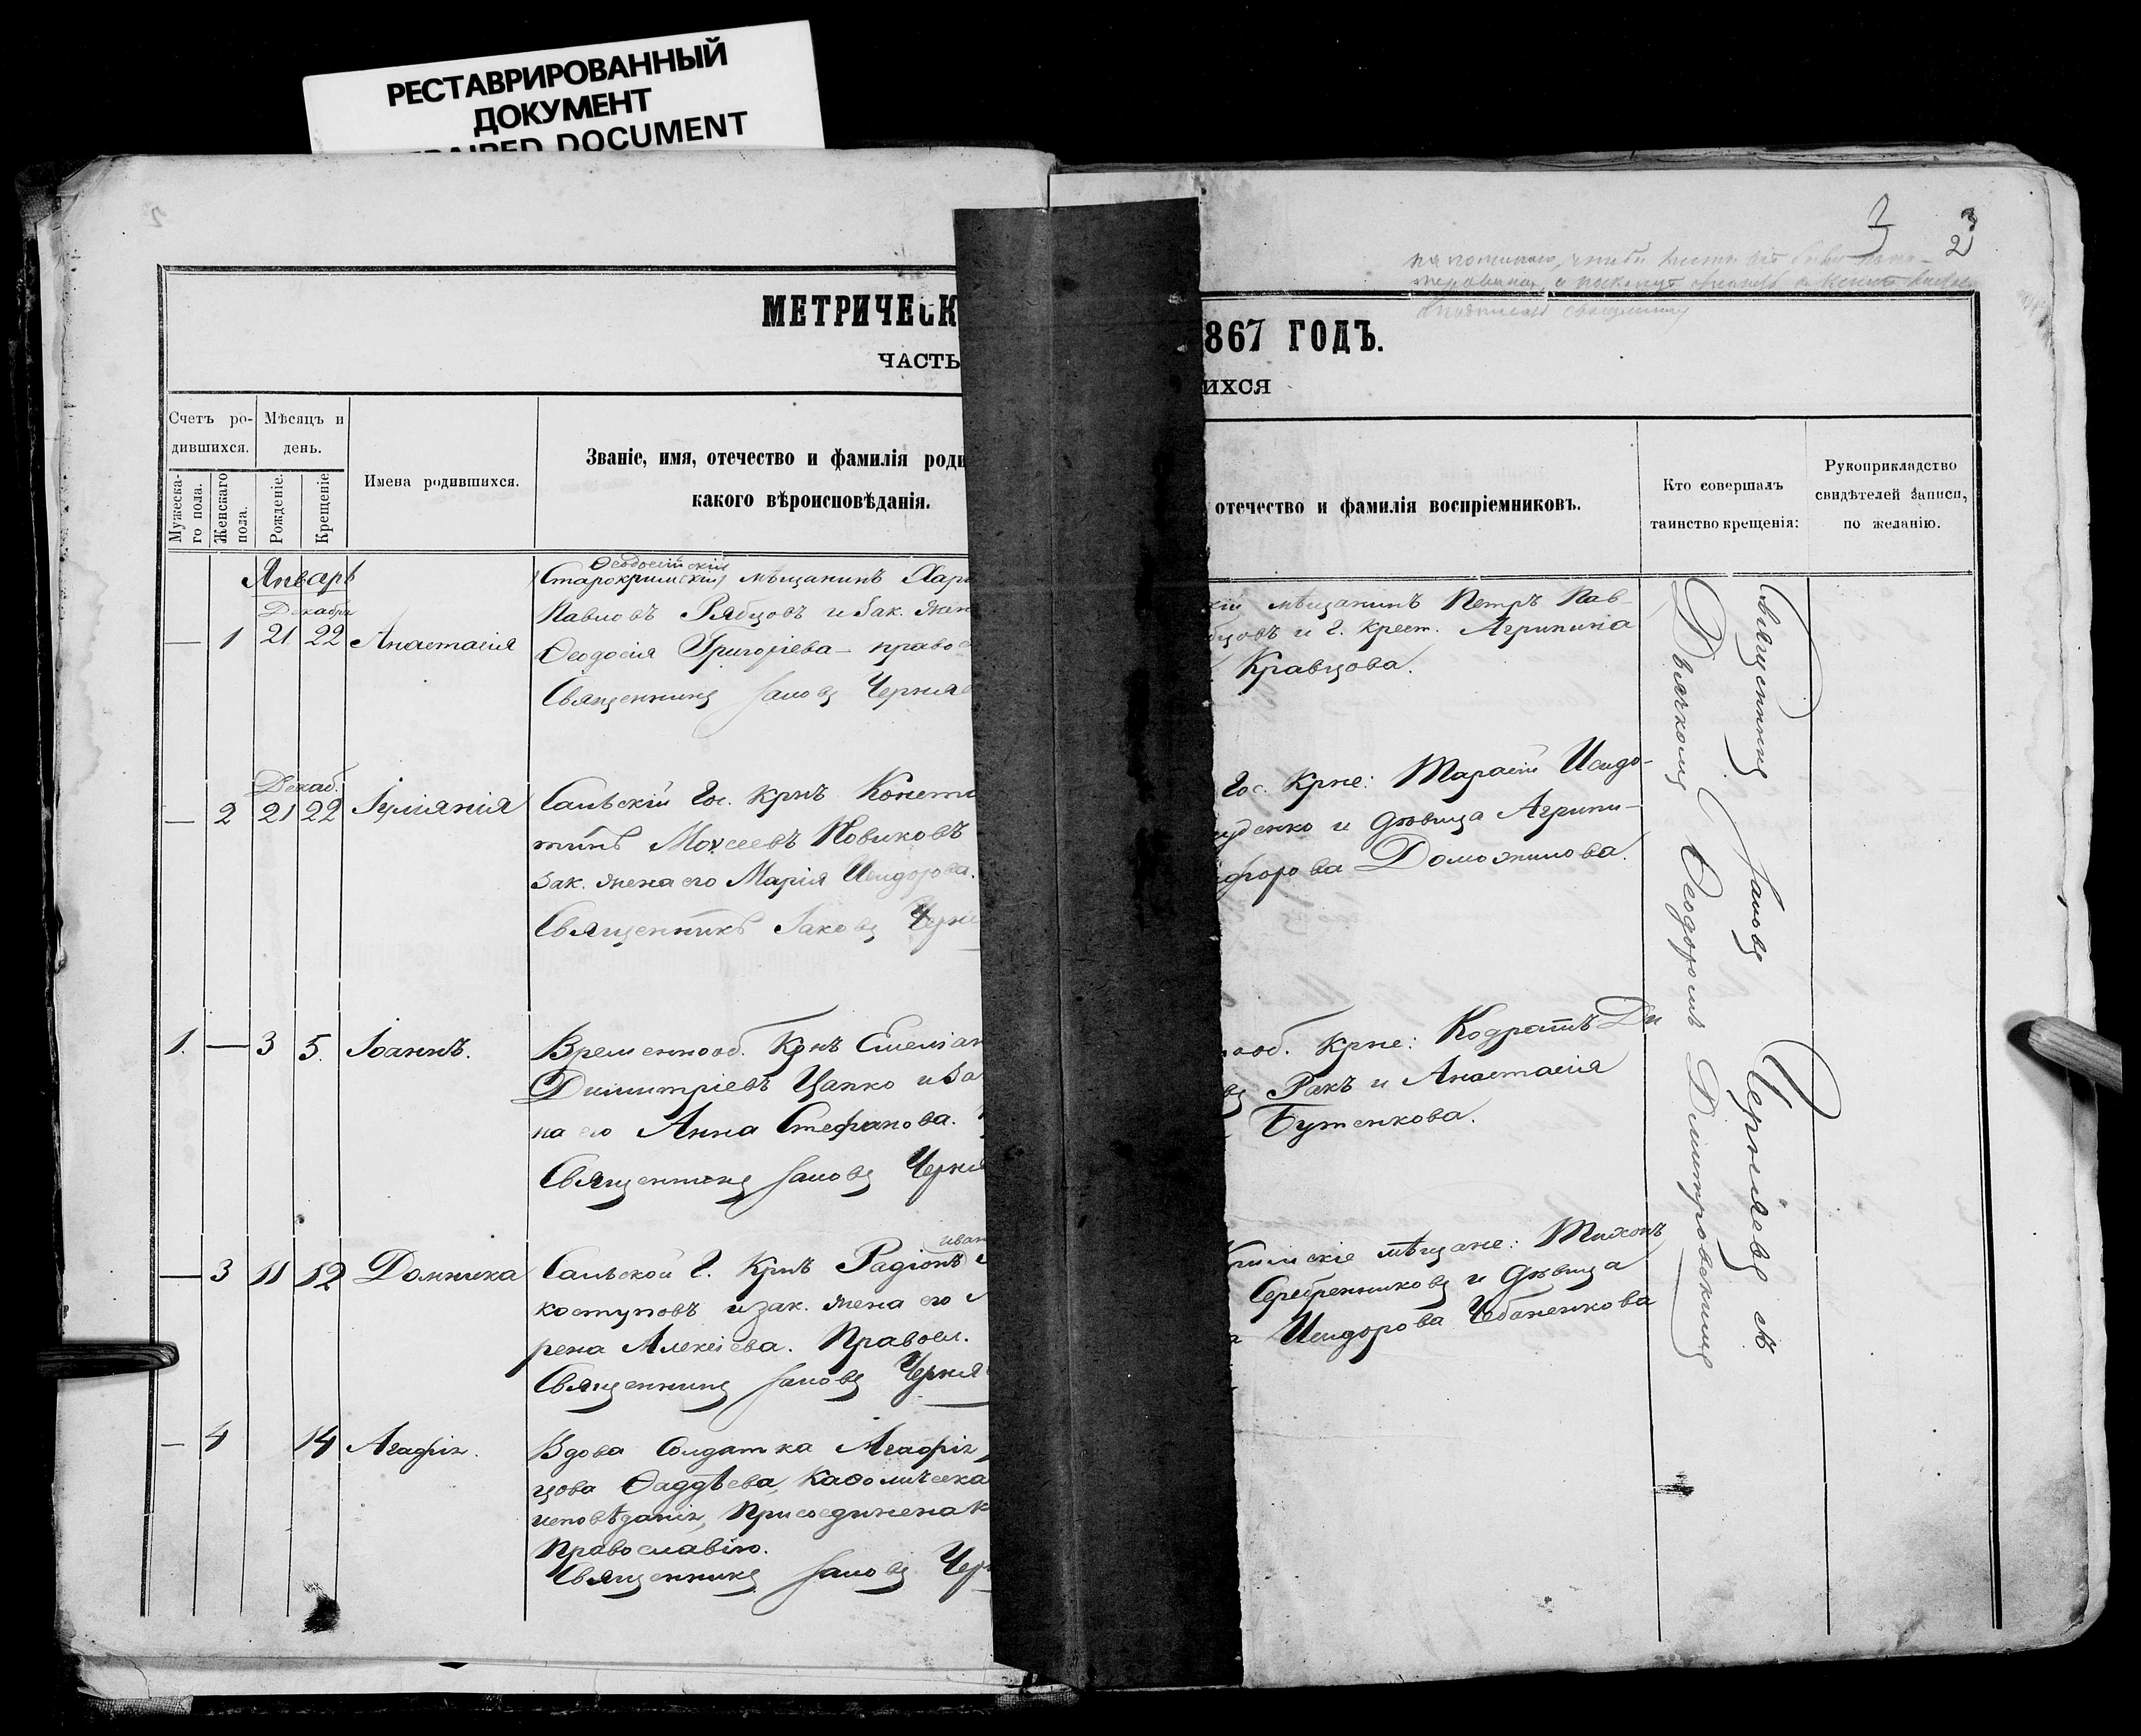 РЕСТАВРИРОВАННЫЙ
ДОКУМЕНТ
DOCUMENT
3
2
МЕТРИЧЕСК
867 ГОДЪ.
ЧАСТЬ
ИХСЯ
Счетъ ро-
дившихся.
Мужеска-
го пола.
Женскаго
пола.
Мѣсяцъ и
день.
Рожденіе.
Крещеніе
Имена родившихся.
Званіе, имя, отечество и фамилія роди
какого вѣроисповѣданія.
отечество и фамилія воспріемниковъ.
Кто совершалъ
таинство крещенія:
Рукоприкладство
свидѣтелей записи,
по желанію.
Январь
Декабря
— 1 21 22 Анастасія
Ѳеодосійскій
Старокримскій мѣщанинъ Хари
Павловъ Рябцовъ и зак. жен
Ѳеодосія Григоріева — право
Священникъ Іаковъ Черняе
кій мѣщанинъ Петръ Пав-
бцовъ и г. крест. Агрипина
Кравцова.
Декаб.
— 2 21 22 Іуліянія
Сальскій Гос. Крнъ Конста
тинъ Мойсеевъ Новиковъ
Зак. жена его Марія Исидорова.
Священникъ Іаковъ Черне
Гос. Крне: Тарасій Исидо-
уденко и дѣвица Агрипи-
форова Доможилова.
1. — 3 5. Іоаннъ.
Временнооб. Крнъ Емельян
Димитріевъ Цапко и За
на его Анна Стефанова.
Священникъ Іаковъ Черня
ооб. Крне: Кодратъ Ди
въ Ракъ и Анастасія
Бутенкова.
— 3 11 12 Домника
иван
Сальской Г. Крнъ Радіонъ
коступовъ и зак. жена его
рена Алексіева. Правосл.
Священникъ Іаковъ Черня
Кримскіе мѣщане: Тихонъ
Серебренниковъ и дѣвица
а Исидорова Чебаненкова
— 4 14 Агафія.
Вдова Солдатка Агафія
цова Ѳаддѣева, Каѳолическа
исповѣданія, Присоединена к
Православію.
Священникъ Іаковъ Чер
Священникъ Іаковъ Черняевъ съ
Дьячкомъ Ѳеодоромъ Димитровскимъ